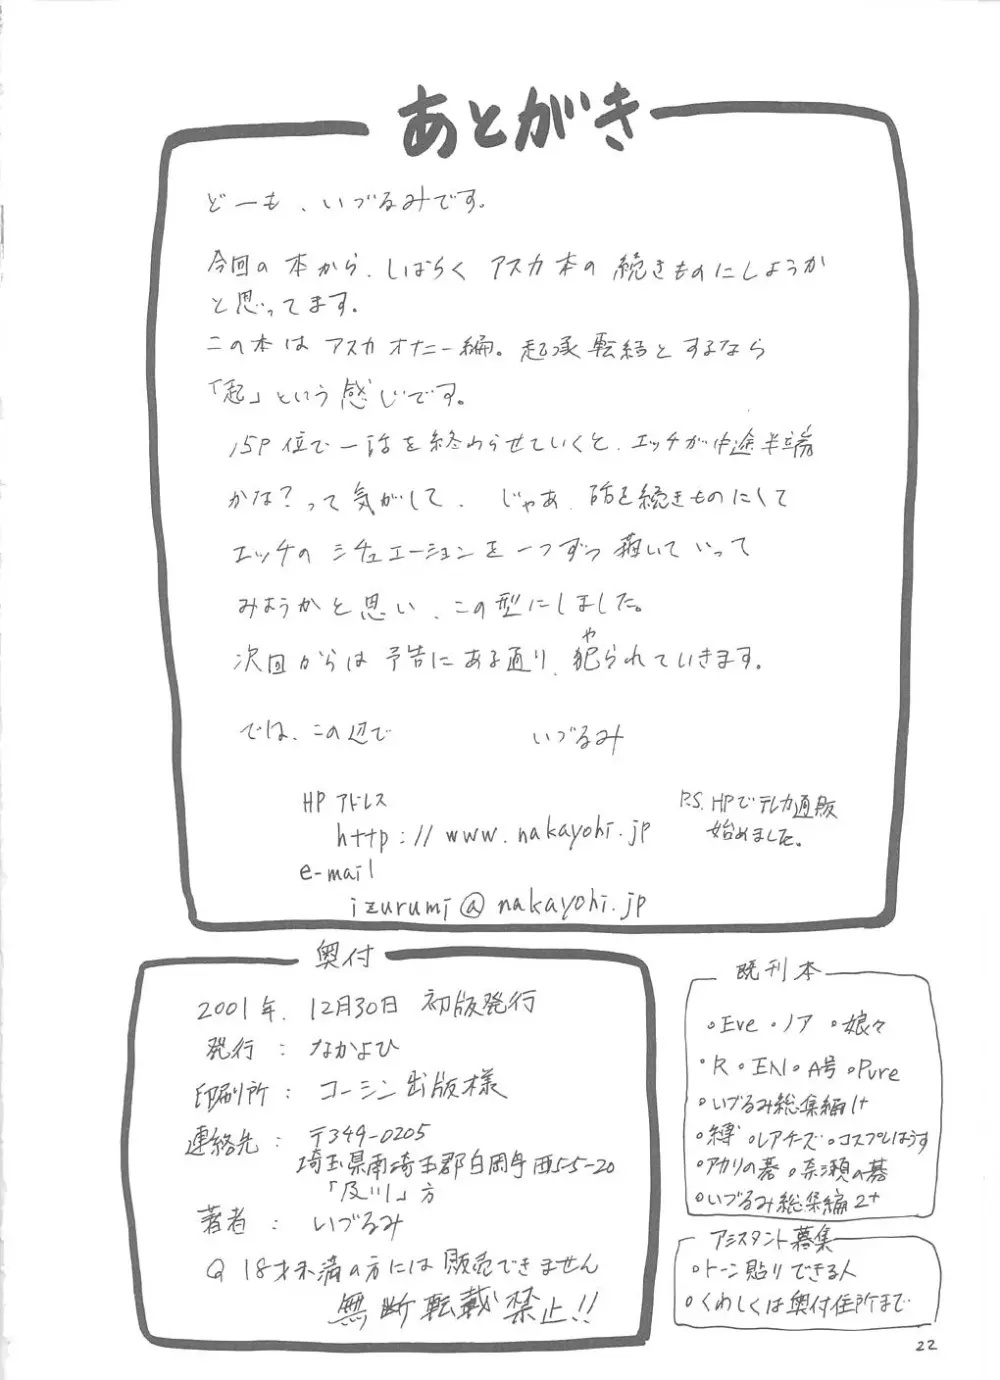 あとがき
どーも、いづるみです。
今回の本から、しばらく アスカ本の 続きものにしようか
と思ってます。
この本は アスカオナニー編。起承転結とするなら
「起」という感じです。
15P位で一話を終わらせていくと、エッチが中途半端
かな？って気がして、じゃあ、話を続きものにして
エッチの シチュエーションを一つずつ 描いていって
みようかと思い、この型にしました。
次回からは 予告にある通り、犯(や)られていきます。
では、この辺で いづるみ
HP アドレス
http://www.nakayohi.jp
e-mail
izurumi@nakayohi.jp
P.S. HPでテレカ通販
始めました。
奥付
2001年、12月30日 初版発行
発行 : なかよひ
印刷所 : コーシン出版様
連絡先 : 〒349-0205
埼玉県南埼玉郡白岡町西5-5-20
「及川」方
著者 : いづるみ
18才未満の方には販売できません
無断転載禁止!!
既刊本
・Eve ・ノア ・娘々
・R ・EN ・A号 ・Pure
・いづるみ総集編1+
・縛 ・レアチーズ ・コスプレはうす
・アカリの碁 ・奈瀬の碁
・いづるみ総集編2+
アシスタント募集
・トーン貼りできる人
・くわしくは奥付住所まで
22